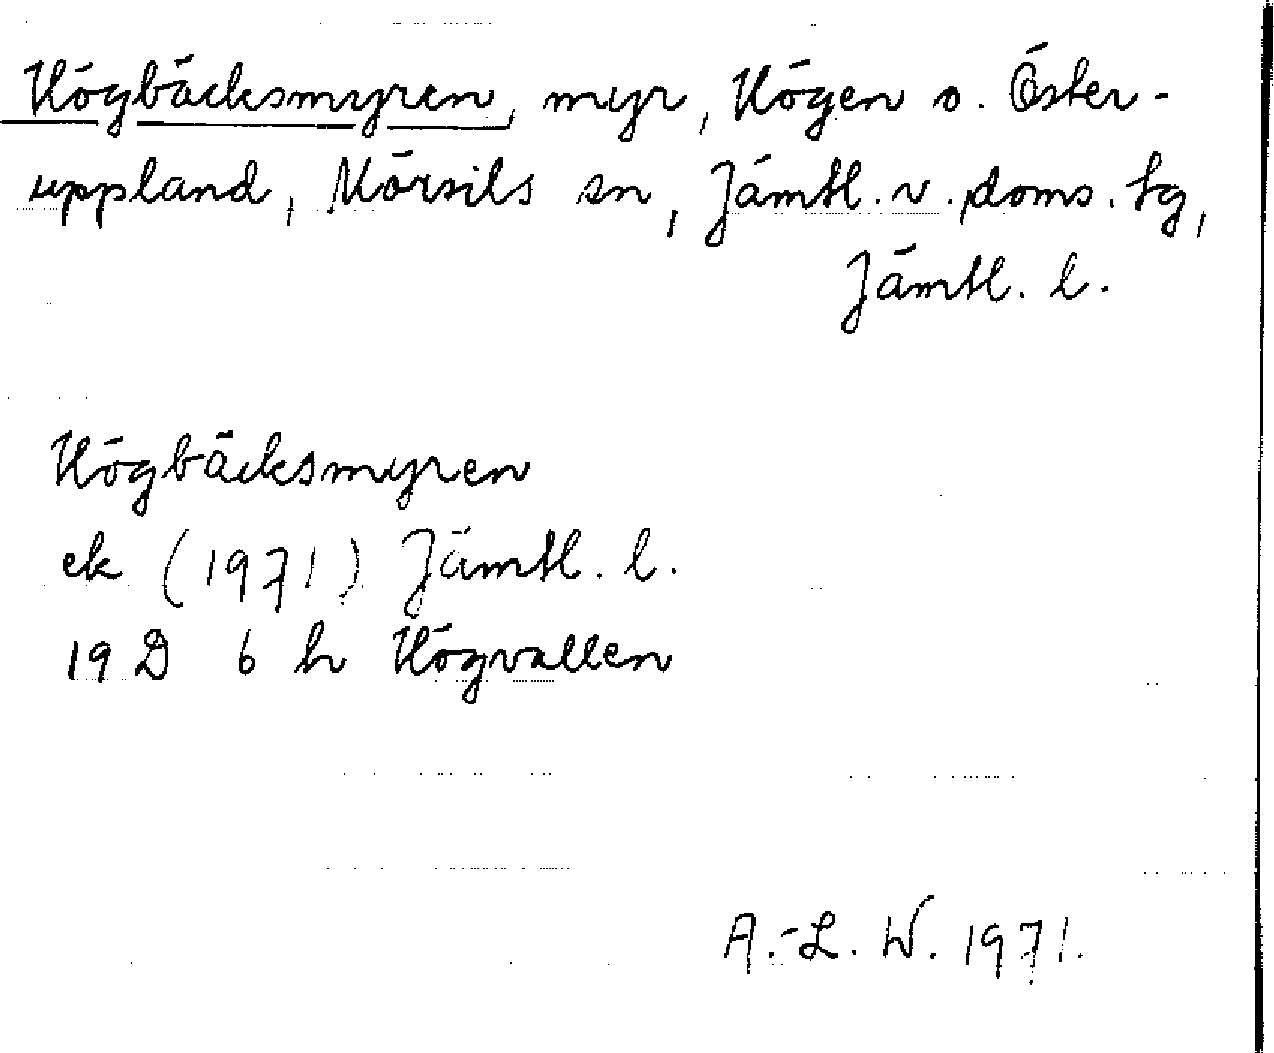 Högbäcksmyren, myr, Högen o. Öster-
uppland, Mörsils sn, Jämtl. v. doms. tg,
Jämtl. l.
Högbäcksmyren
ek (1971) Jämtl. l.
19 D 6 h Högvallen
A.-L. W. 1971.